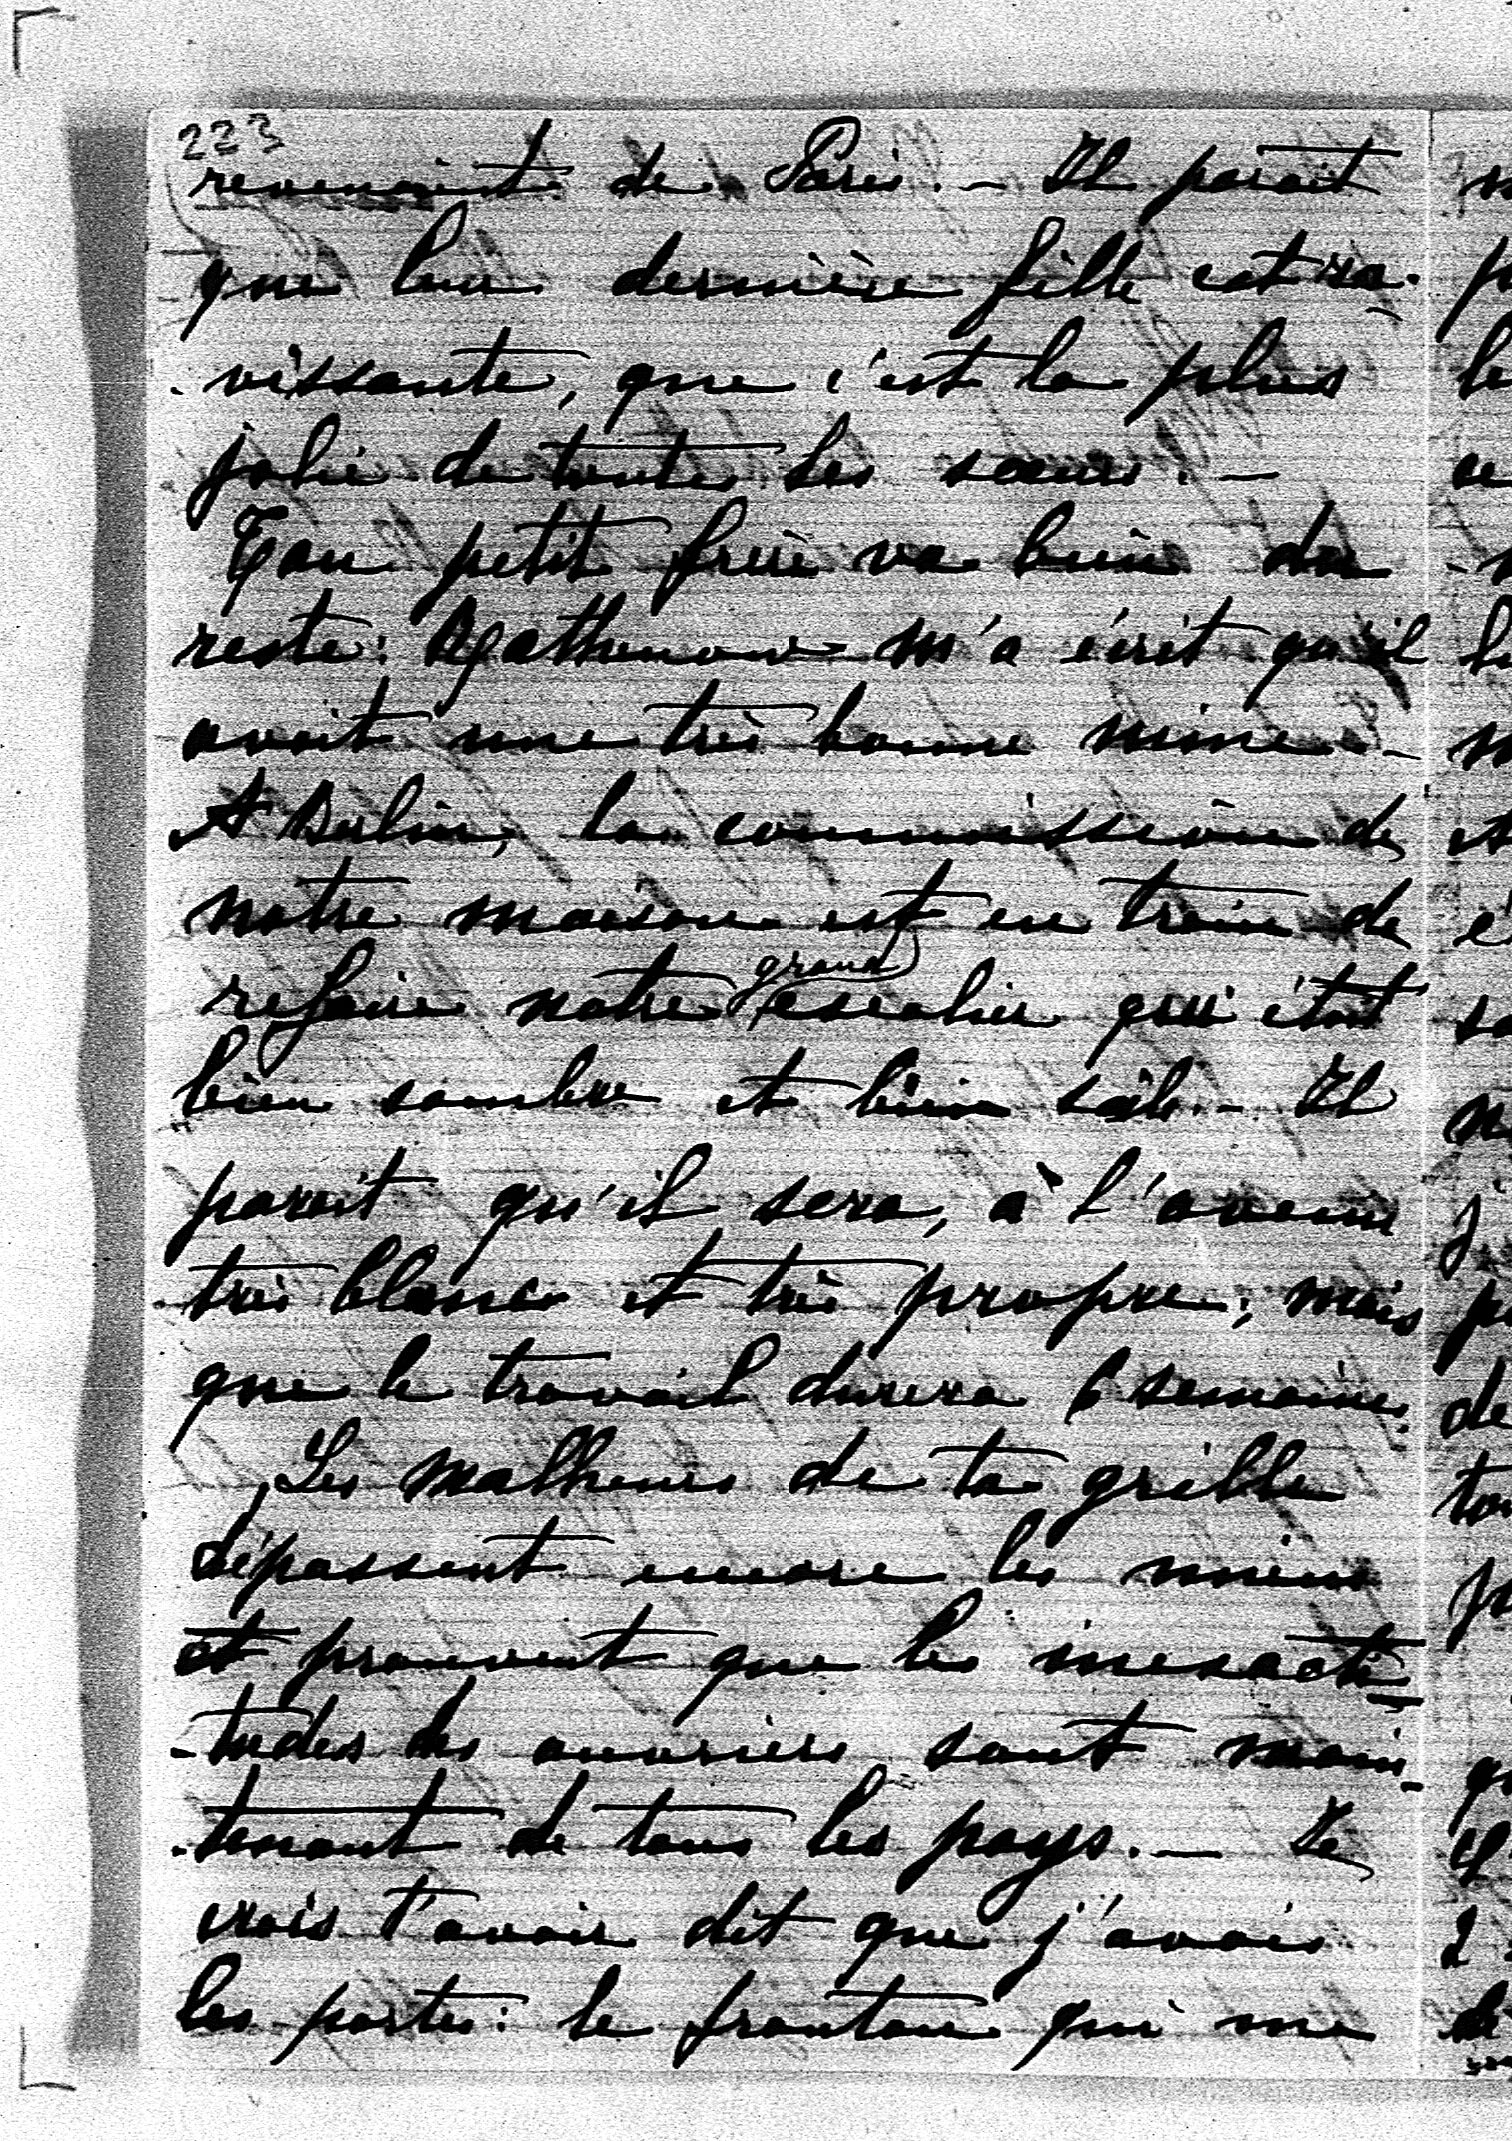 223
revenaient de Paris. — Il parait
que leur dernière fille est ra-
-vissante, que c'est la plus
jolie de toutes les sœurs. —
Ton petit frère va bien du
reste: m'a écrit qu'il
avait une très bonne mine. —
A Berlin, la commission de
notre maison est en train de
refaire notre grand escalier qui était
bien sombre et bien sale. — Il
parait qu'il sera, à l'avenir
très blanc et très propre; mais
que le travail durera 6 semaines.
Les malheurs de ta grille
dépassent encore les miens
et prouvent que les inexacti-
-tudes des ouvriers sont main-
-tenant de tous les pays. — Je
crois t'avoir dit que j'avais
les portes: le fronton qui me